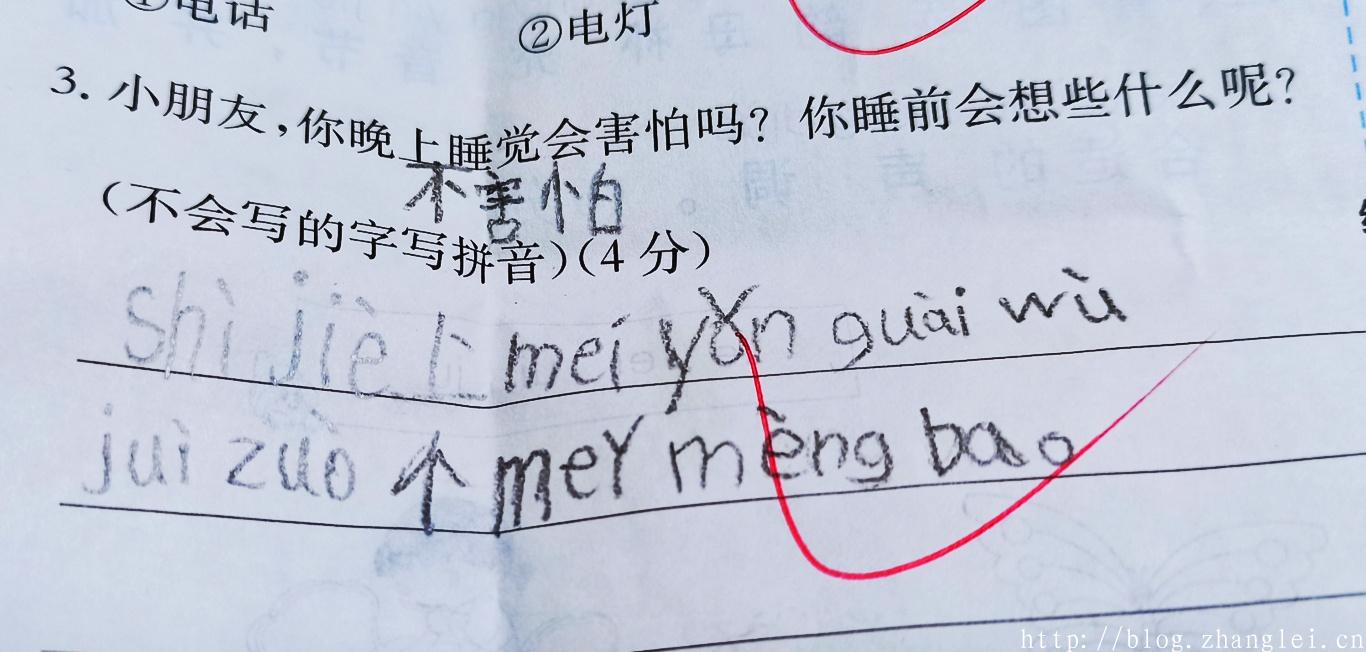 ①电话 ②电灯
3. 小朋友,你晚上睡觉会害怕吗? 你睡前会想些什么呢?
不害怕
(不会写的字写拼音)(4分)
shì jiè上 meí yǒn guài wù
juì zuò 个 meY mèng bao
http://blog.zhanglei.cn